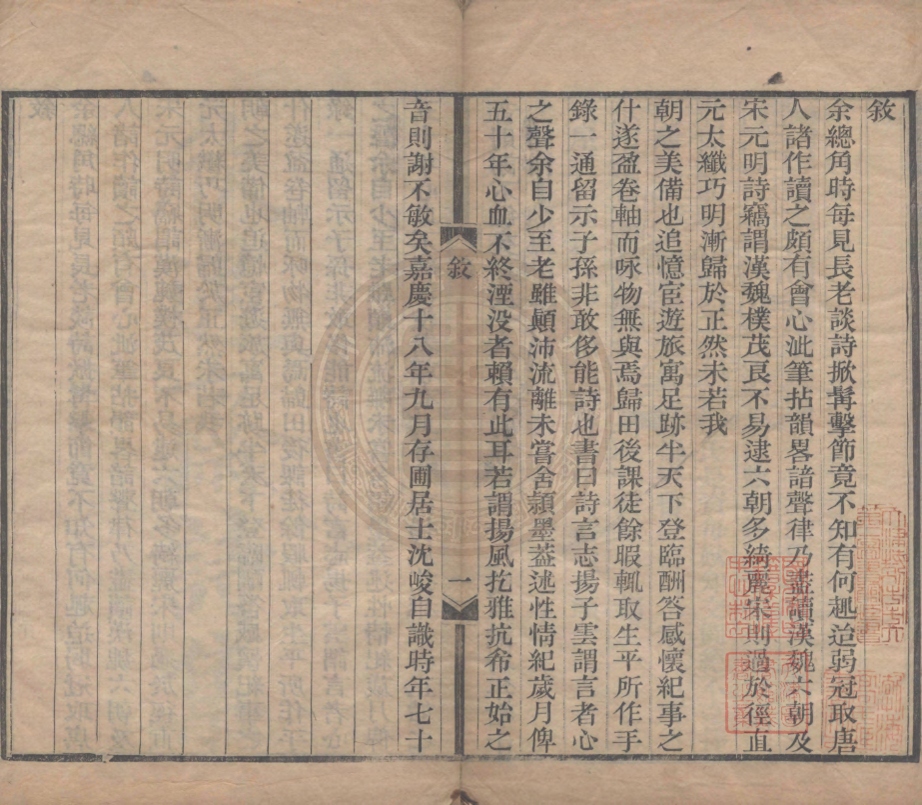 敘
余總角時每見長老談詩掀髯擊節竟不知有何趣迨弱冠取唐
人諸作讀之頗有會心泚筆拈韻畧諳聲律乃盡讀漢魏六朝及
宋元明詩竊謂漢魏樸茂良不易逮六朝多綺麗宋則過於徑直
元太纖巧明漸歸於正然未若我
朝之美備也追憶宦遊旅寓足跡半天下登臨酬答感懷紀事之
什遂盈卷軸而咏物無與焉歸田後課徒餘暇輒取生平所作手
錄一通留示子孫非敢侈能詩也書曰詩言志揚子雲謂言者心
之聲余自少至老雖顛沛流離未嘗舍頴墨葢述性情紀歲月俾
五十年心血不終湮没者賴有此耳若謂揚風扢雅抗希正始之
音則謝不敏矣嘉慶十八年九月存圃居士沈峻自識時年七十
敘
一